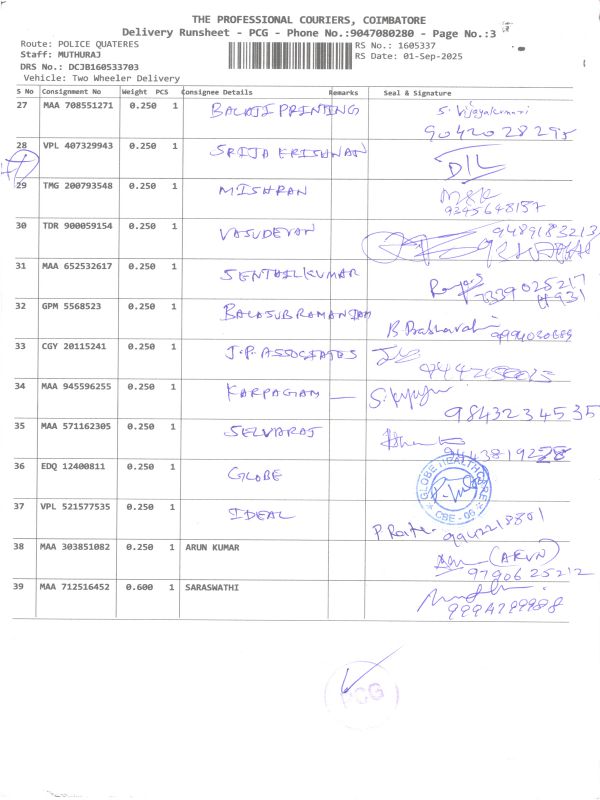 THE PROFESSIONAL COURIERS, COIMBATORE
Delivery Runsheet - PCG - Phone No.:9047080280 - Page No.:3
Route: POLICE QUATERES
RS No.: 1605337
Staff: MUTHURAJ
RS Date: 01-Sep-2025
DRS No.: DCJB160533703
Vehicle: Two Wheeler Delivery
S No Consignment No Weight PCS Consignee Details Remarks Seal & Signature
27 MAA 708551271 0.250 1 BALAJI PRINTING S. Vijayakumari
9042028295
28 VPL 407329943 0.250 1 SRIJA KRISHNAN DIL
29 TMG 200793548 0.250 1 MISHRAN
9345648157
30 TDR 900059154 0.250 1 VASUDEVAN 9489183213
31 MAA 652532617 0.250 1 SENTHILKUMAR
7339025217
32 GPM 5568523 0.250 1 BALASUBRAMANIAM B Prabhavathi
33 CGY 20115241 0.250 1 J.P. ASSOCIATES
34 MAA 945596255 0.250 1 KARPAGAM —
9843234535
35 MAA 571162305 0.250 1 SELVARAJ
9443819228
36 EDQ 12400811 0.250 1 GLOBE GLOBE HEALTHCARE
CBE - 06
37 VPL 521577535 0.250 1 IDEAL
9942218801
38 MAA 303851082 0.250 1 ARUN KUMAR (ARUN)
9790625212
39 MAA 712516452 0.600 1 SARASWATHI
PCG